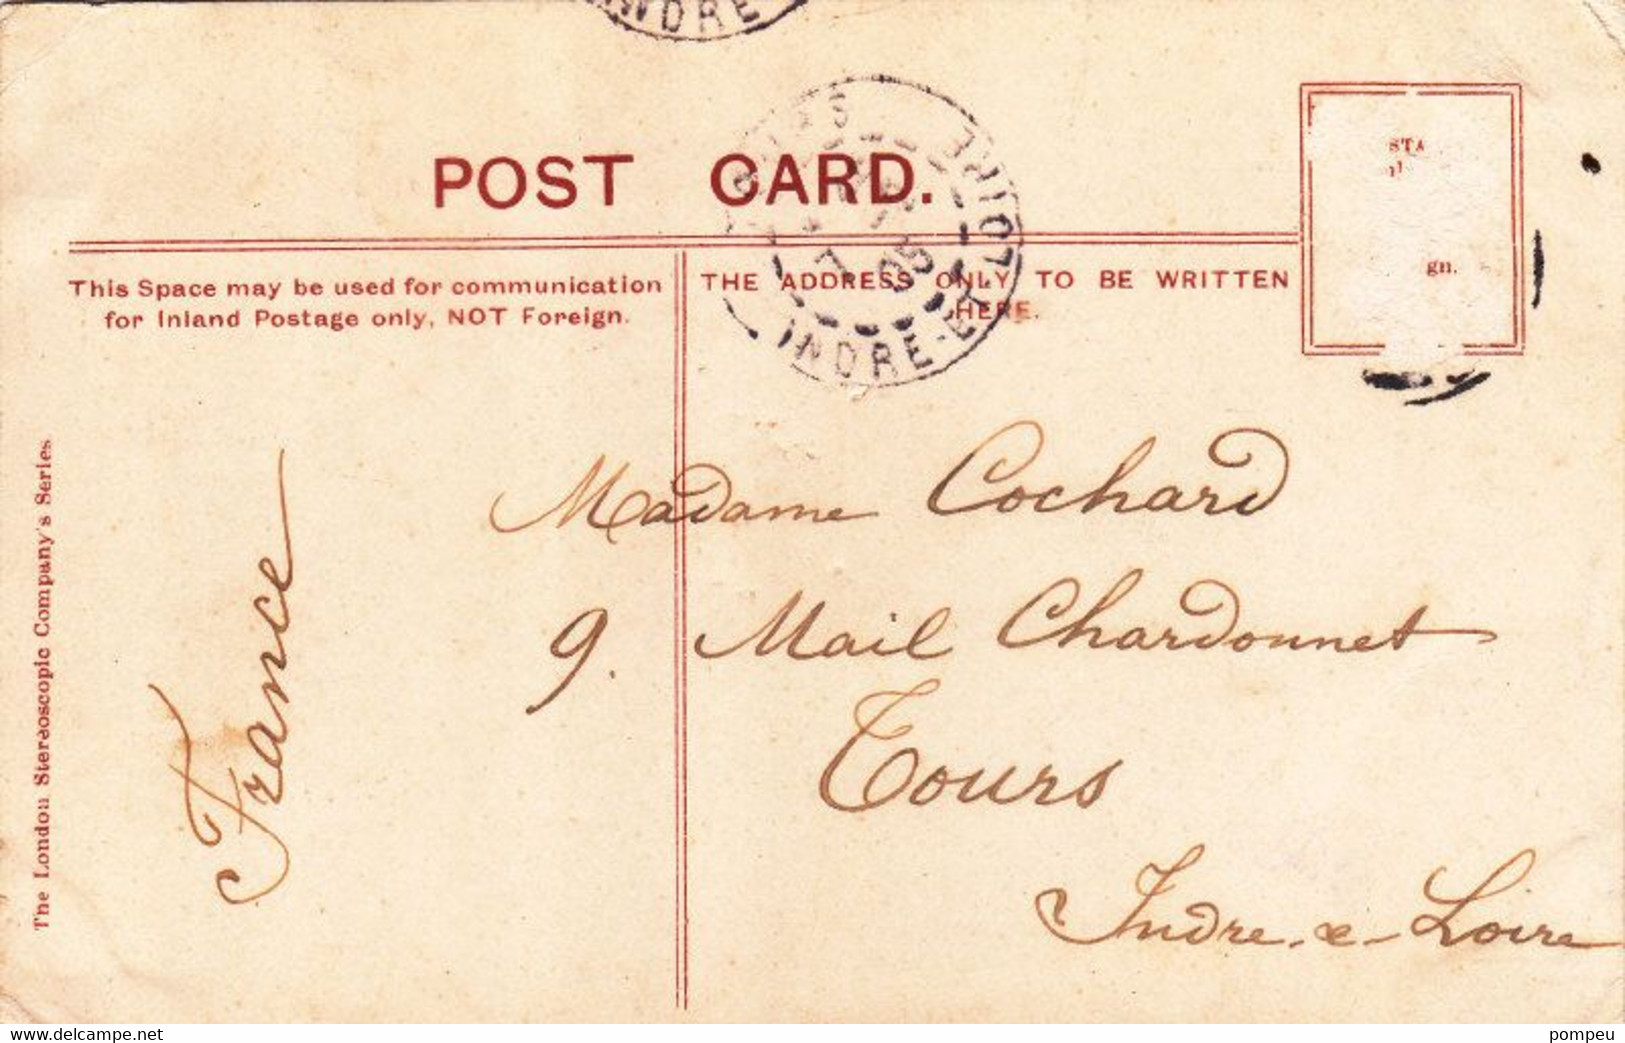 INDRE
TOURS
INDRE-ET-LOIRE
05
POST CARD.
STA
gn.
This Space may be used for communication
for Inland Postage only, NOT Foreign.
THE ADDRESS ONLY TO BE WRITTEN
HERE.
The London Stereoscopic Company's Series
France
Madame Cochard
9. Mail Chardonnet
Tours
Indre-e-Loire
www.delcampe.net
pompeu